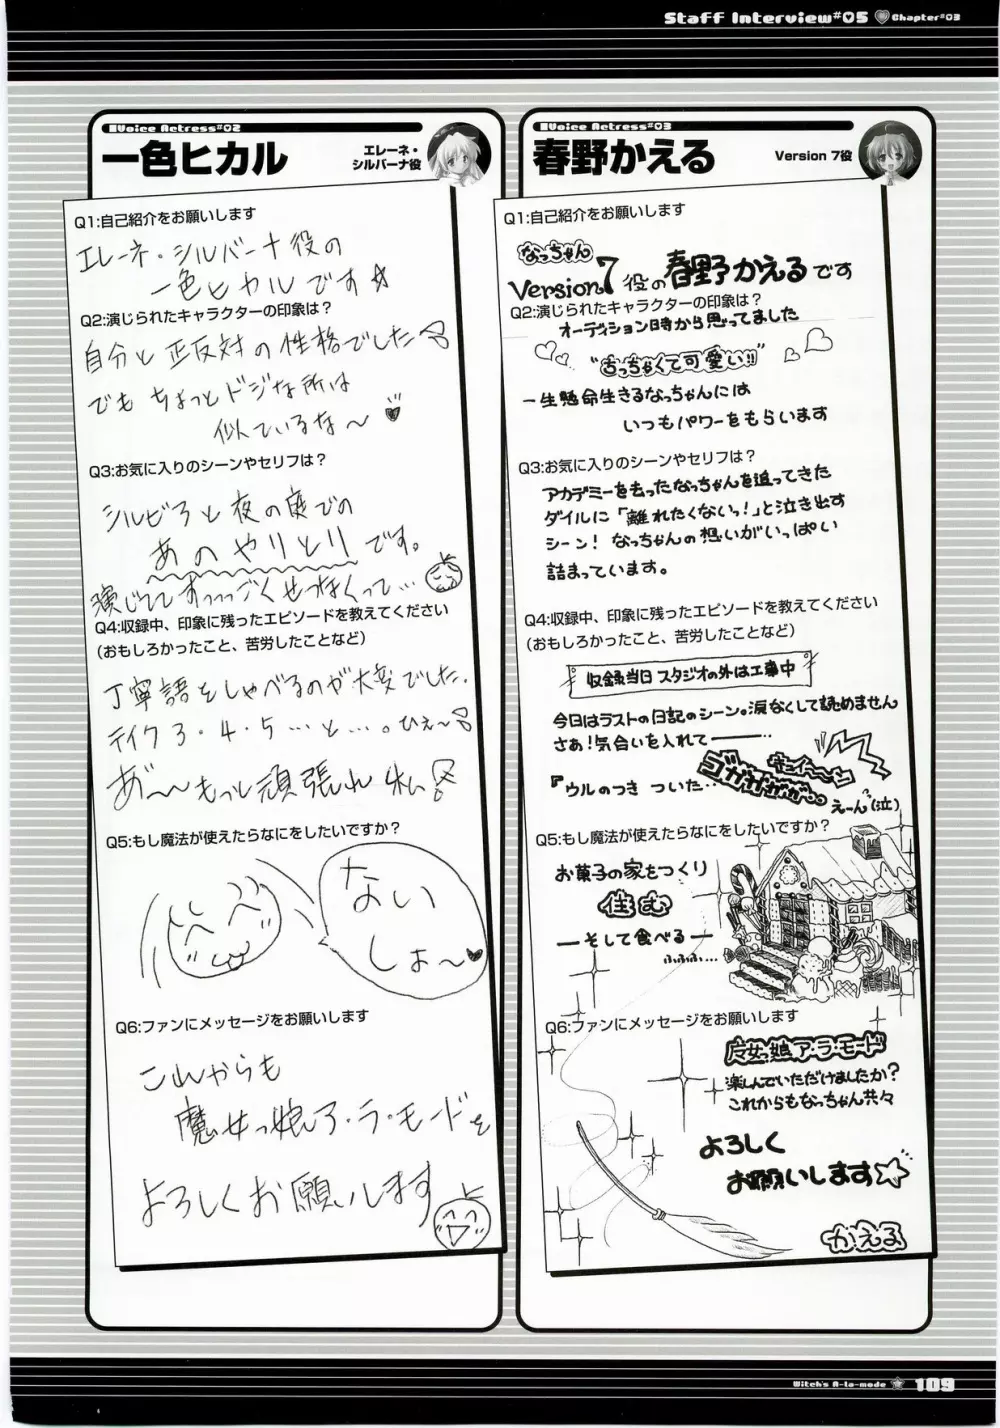 Staff Interview#05 Chapter#03
Voice Actress#02
一色ヒカル
エレーネ・
シルバーナ役
Q1:自己紹介をお願いします
エレーネ・シルバーナ役の
一色ヒカルです☆
Q2:演じられたキャラクターの印象は?
自分と正反対の性格でした
でもちょっとドジな所は
似ているな〜♥
Q3:お気に入りのシーンやセリフは?
シルビアと夜の庭での
あのやりとりです。
演じててすっっっごくせつなくって…
Q4:収録中、印象に残ったエピソードを教えてください
(おもしろかったこと、苦労したことなど)
丁寧語をしゃべるのが大変でした.
テイク3・4・5…と…。ひぇ〜
あ゛〜〜もっと頑張れ私
Q5:もし魔法が使えたらなにをしたいですか?
ない
しょ〜♥
Q6:ファンにメッセージをお願いします
これからも
魔女っ娘ア・ラ・モードを
よろしくお願いします
Voice Actress#03
春野かえる
Version 7役
Q1:自己紹介をお願いします
なっちゃん
Version7役の春野かえるです
Q2:演じられたキャラクターの印象は?
オーディション時から思ってました
"ちっちゃくて可愛い!!"
一生懸命生きるなっちゃんには
いつもパワーをもらいます
Q3:お気に入りのシーンやセリフは?
アカデミーを去ったなっちゃんを追ってきた
ダイルに「離れたくないっ!」と泣き出す
シーン!なっちゃんの想いがいっぱい
詰まっています。
Q4:収録中、印象に残ったエピソードを教えてください
(おもしろかったこと、苦労したことなど)
収録当日 スタジオの外は工事中
今日はラストの日記のシーン。涙なくして読めません
さあ!気合いを入れて―――…
『ウルのつき ついた‥
ゴガガガガ。。
キュイーーン
えーん?(泣)
Q5:もし魔法が使えたらなにをしたいですか?
お菓子の家をつくり
住む
―そして食べる―
ふふふ…
Q6:ファンにメッセージをお願いします
魔女っ娘ア・ラ・モード
楽しんでいただけましたか?
これからもなっちゃん共々
よろしく
お願いします☆
かえる
Witch's A-la-mode 109